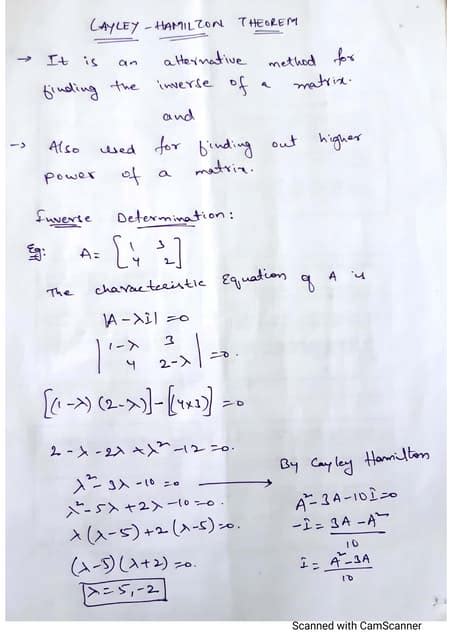 CAYLEY - HAMILTON THEOREM
→ It is an alternative method for
finding the inverse of a matrix.
and
→ Also used for finding out higher
power of a matrix.
Inverse Determination:
Eg: A = [1 3
4 2]
The characteristic Equation of A is
|A - λI| = 0
|1-λ 3
4 2-λ| = 0.
[(1-λ) (2-λ)] - [(4x3)] = 0
2 - λ - 2λ + λ² - 12 = 0.
λ² - 3λ - 10 = 0 →
λ² - 5λ + 2λ - 10 = 0.
λ(λ-5) + 2(λ-5) = 0.
(λ-5)(λ+2) = 0.
λ = 5, -2
By Cayley Hamilton
A² - 3A - 10I = 0
-I = 3A - A²
10
I = A² - 3A
10
Scanned with CamScanner